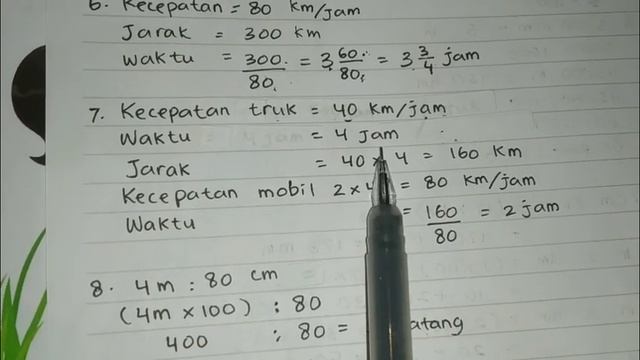 6. Kecepatan = 80 km/jam
Jarak = 300 km
Waktu = 300/80 = 3 60/80 = 3 3/4 jam
7. Kecepatan truk = 40 km/jam
Waktu = 4 jam
Jarak = 40 x 4 = 160 km
Kecepatan mobil 2 x 4 = 80 km/jam
Waktu = 160/80 = 2 jam
8. 4m : 80 cm
(4m x 100) : 80
400 : 80 =